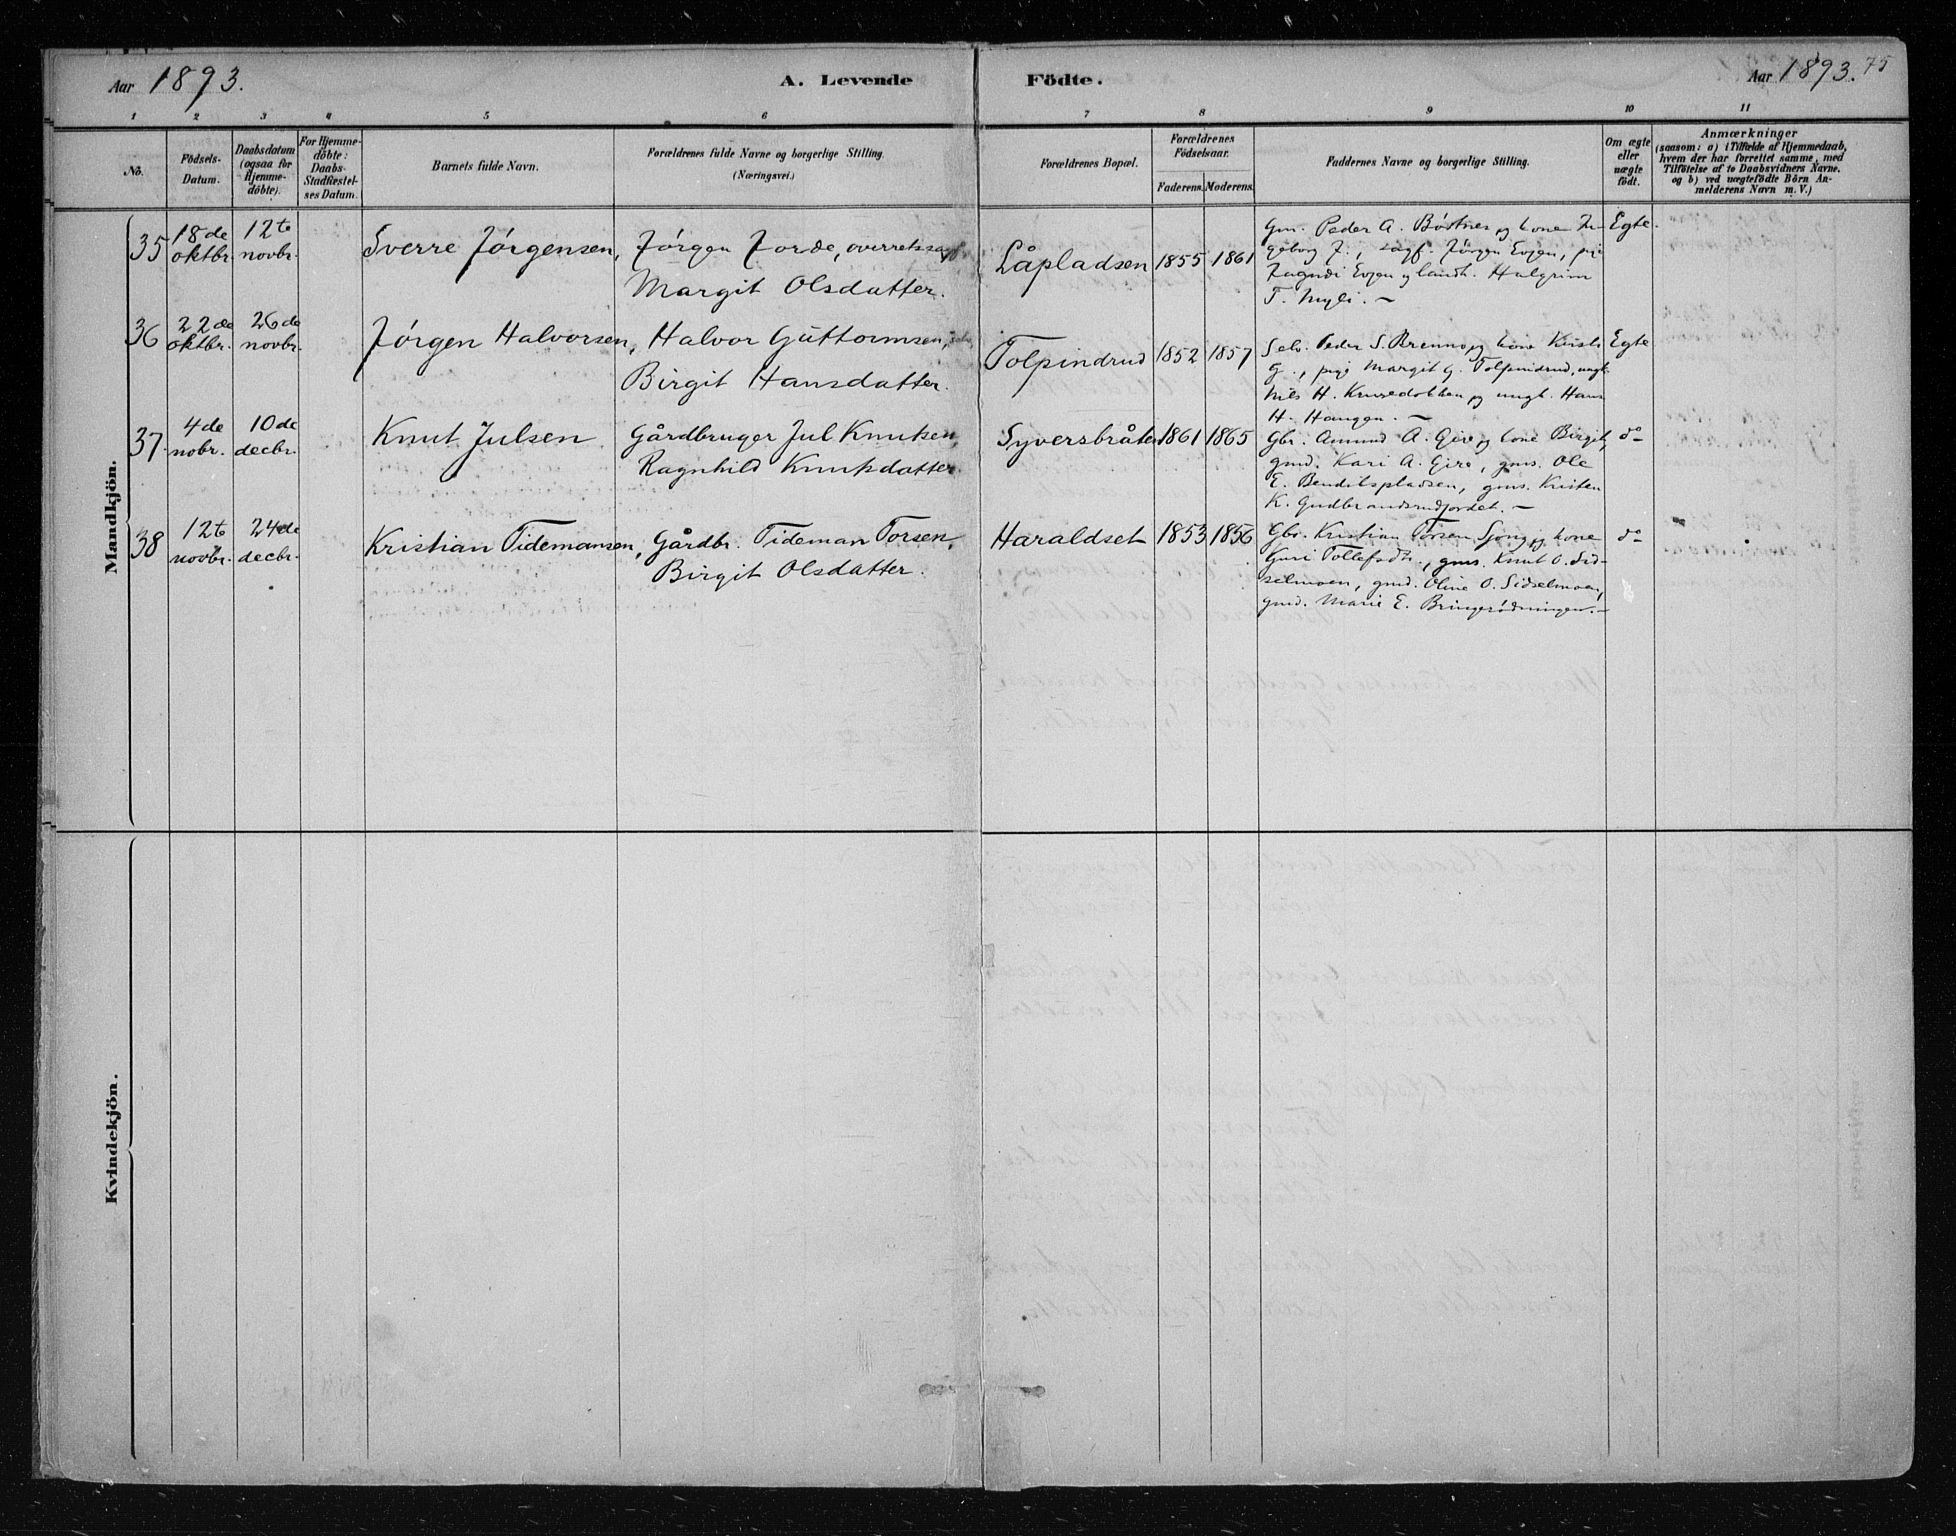 Aar 1893. A. Levende Födte. Aar 1893. 75
1 2 3 4 5 6 7 8 9 10 11
No. Födsels-Datum. Daabsdatum (ogsaa for Hjemmedöbte). For Hjemmedöbte: Daabs-Stadfæstelses Datum. Barnets fulde Navn. Forældrenes fulde Navne og borgerlige Stilling. (Næringsvei.) Forældrenes Bopæl. Forældrenes Födselsaar. Faderens. Moderens. Faddernes Navne og borgerlige Stilling. Om ægte eller uægte födt. Anmærkninger (saasom: a) i Tilfælde af Hjemmedaab, hvem der har forrettet samme, med Tilföielse af to Daabsvidners Navne. og b) ved uægtefödte Börn Anmelderens Navn m. V.)
Mandkjön.
35 18de oktbr. 12te novbr. Sverre Jörgensen, Jörgen Jorde, overretssagf.
Margit Olsdatter.
Låpladsen 1855 1861
Gm. Peder A. Böttnes og kone In-
geborg J., sagf. Jörgen Evjen, pige
Evjen og landh. Halgrim
T. Myli. —
Egte.
36 22de oktbr. 26de novbr. Jörgen Halvorsen, Halvor Guttormsen,
Birgit Hansdatter.
Tolpindrud 1852 1857
Selv. Peder S. Brenno og kone Kirsti
G., pige Margit G. Tolpindrud, ungk.
Nils H. Krusedokken og ungk. Hans
H. Haugen. —
Egte
37. 4de nobr. 10de decbr. Knut Julsen Gårdbruger Jul Knutsen,
Ragnhild Knutsdatter.
Syversbråten 1861 1865
Gbr. Amund A. Gire og kone Birgit,
gmd. Kari A. Gire, gms. Ole
E. Bendikspladsen, gms. Kristen
K. Gudbrandsrudjordet. —
do
38 12te novbr. 24de decbr. Kristian Tidemansen, Gårdbr. Tideman Torsen,
Birgit Olsdatter.
Haraldset 1853 1856
Gbr. Kristian Torsen Sjong og kone
Guri Tollefsdtr., gms. Knut O. Sid-
selmoen, gmd. Oline O. Sidselmoen,
gmd. Marie E. Bringerödningen. —
do
Kvindekjön.